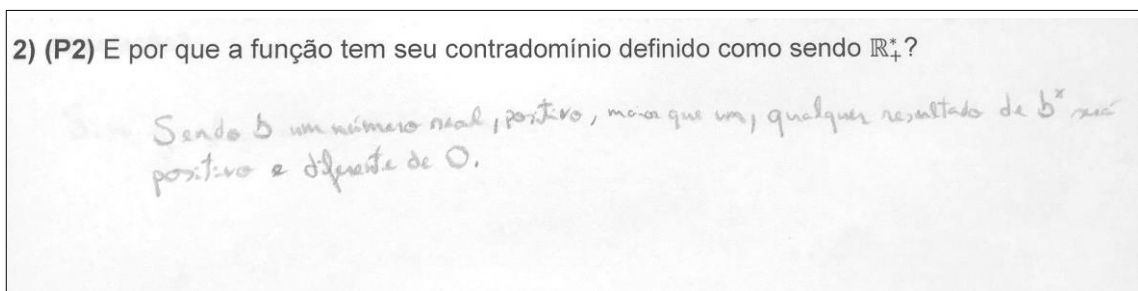 2) (P2) E por que a função tem seu contradomínio definido como sendo ℝ₊*?
Sendo b um número real, positivo, maior que um, qualquer resultado de bˣ será
positivo e diferente de 0.